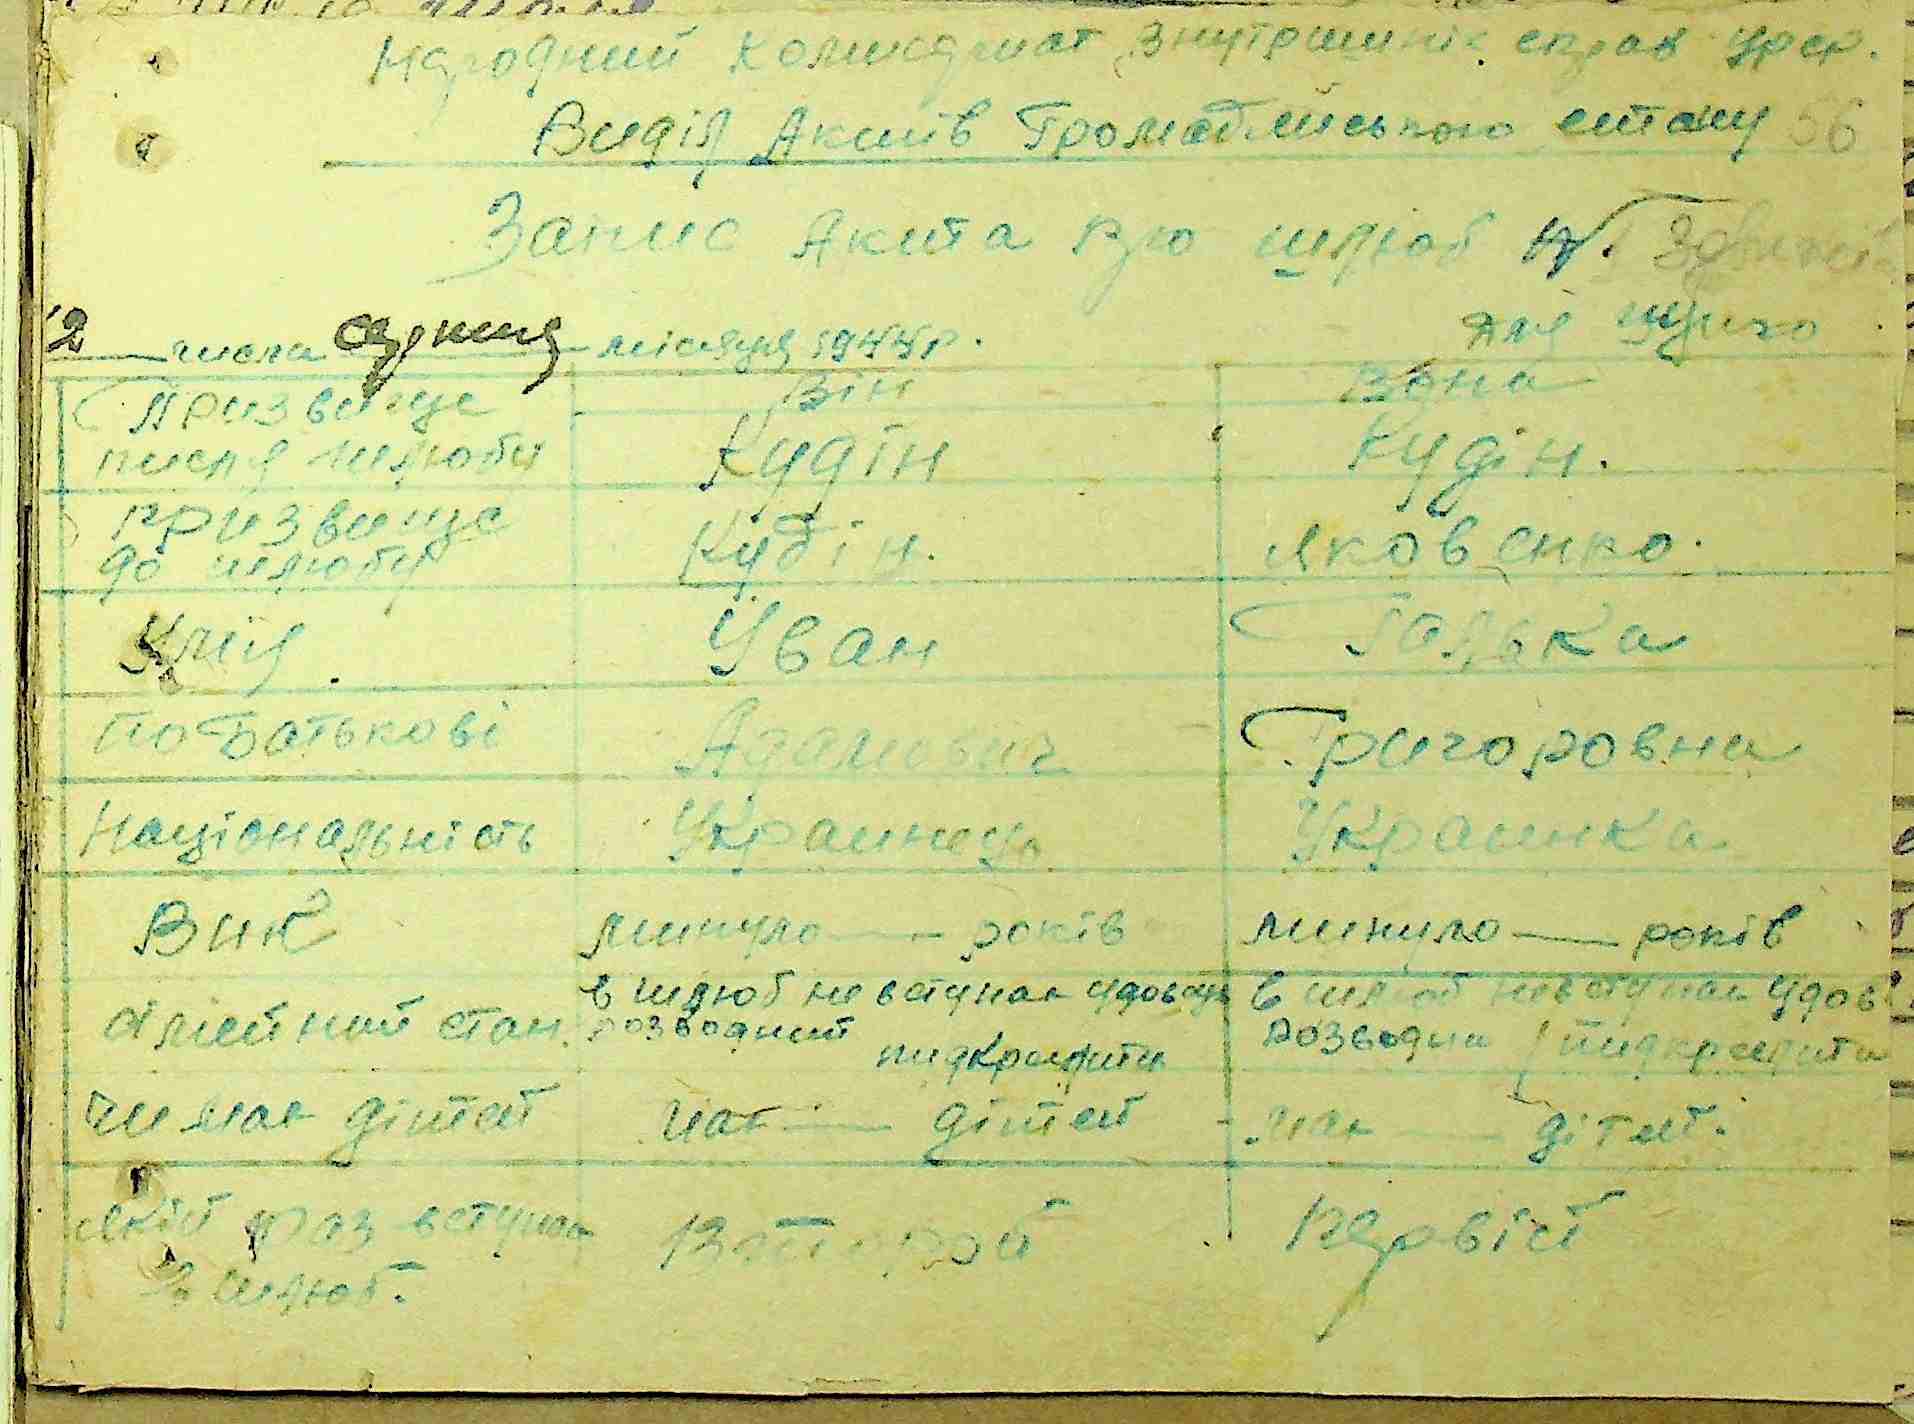 Народний Комисариат Внутришних справ УРСР.
Виділ Актів Громадянського стану 56
Запис Акта про шлюб №
2 числа серпня місяця 1944 р.
Для
Він Вона
Призвище писля шлюбу Кудін Кудін.
Призвище до шлюбу Кудін. Яковенко.
Імя Иван Галька
По Батькові Адамович Григоровна
Національність Украинець Украинка
Вик минуло — років минуло — років
сімейний стан. в шлюб не вступав удовець в шлюб невступав удов
розводний розводна / пидкреслити
пидкреслити
чи має дітей має — дітей має — дітей.
який раз вступає Второй первій
в шлюб.